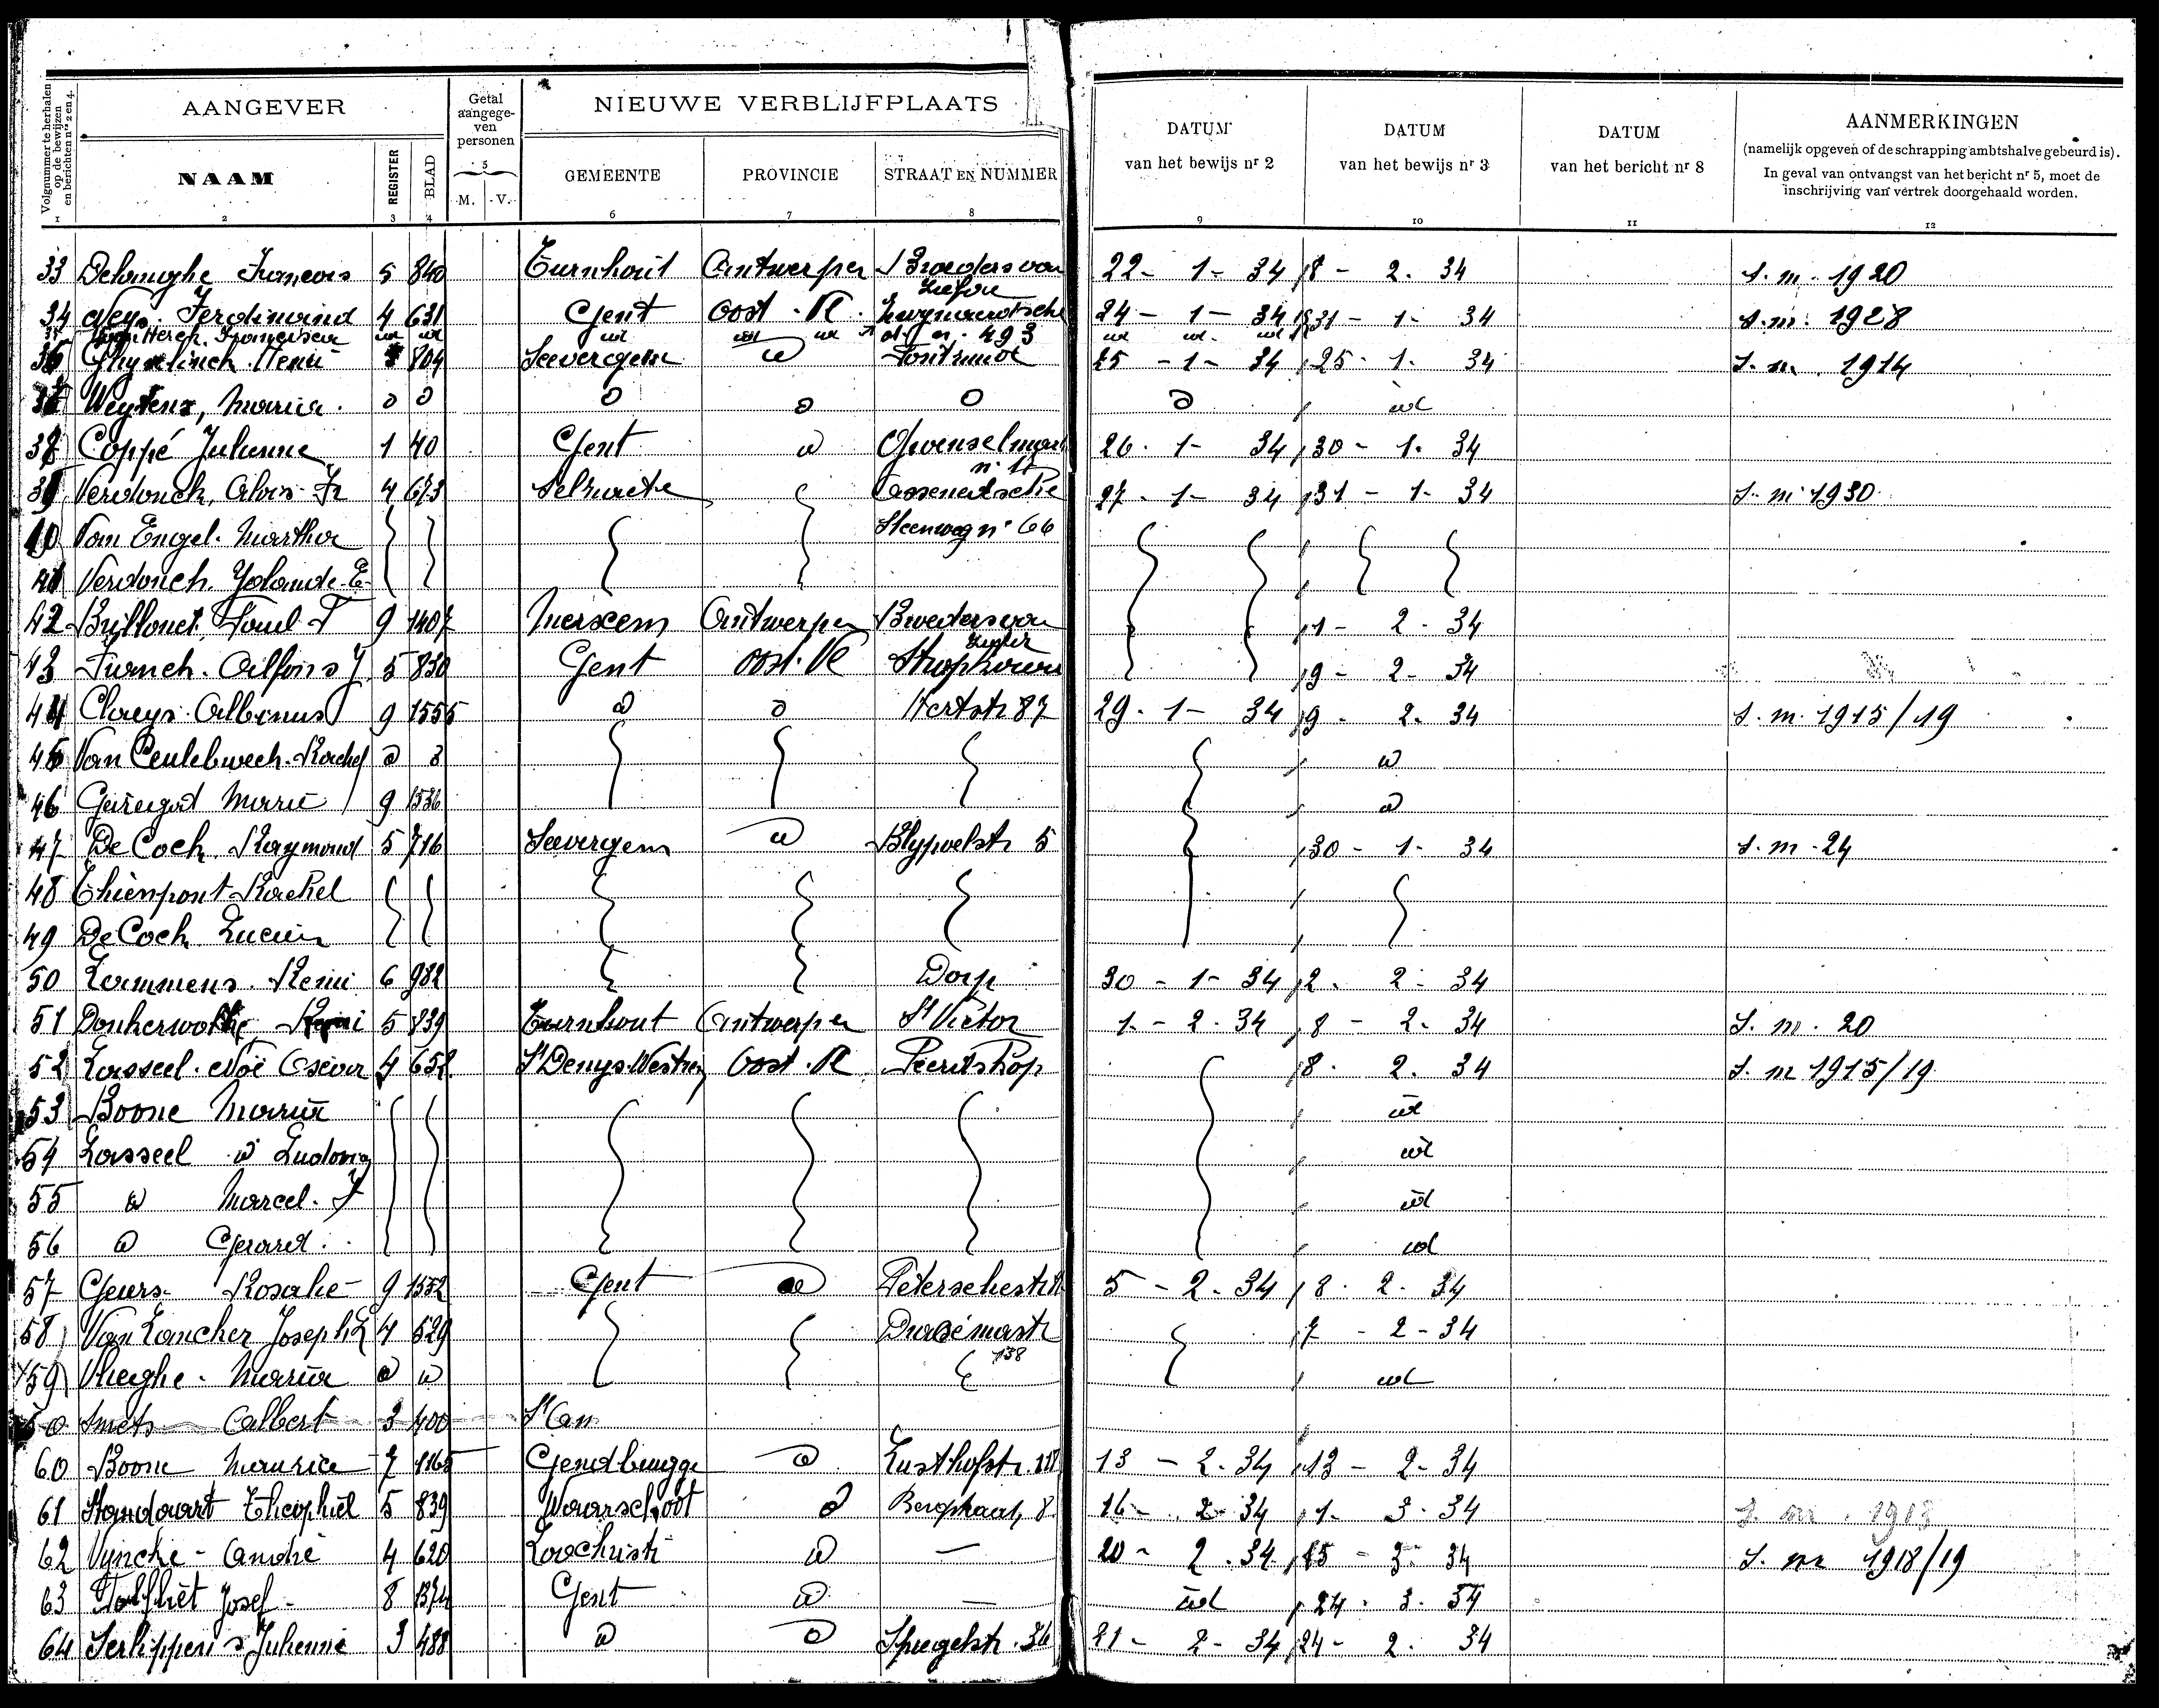 Volgnummer te herhalen op de bewijzen en berichten nrs 2 en 4.
AANGEVER
Getal aangegeven personen
NIEUWE VERBLIJFPLAATS
DATUM van het bewijs nr 2
DATUM van het bewijs nr 3
DATUM van het bericht nr 8
AANMERKINGEN
(namelijk opgeven of de schrapping ambtshalve gebeurd is).
In geval van ontvangst van het bericht nr 5, moet de inschrijving van vertrek doorgehaald worden.
NAAM REGISTER BLAD M. V. GEMEENTE PROVINCIE STRAAT EN NUMMER
1 2 3 4 5 6 7 8 9 10 11 12
33 François 5 840 Turnhout Antwerpen Broeders van Liefde 22 - 1 - 34 8 - 2. 34 S. m. 1920
34 Neys. Ferdinand 4 631 Gent Oost. Vl. 24 - 1 - 34 31 - 1 - 34 S. m. 1928
35 id id id id id n. 493 id id id
36 Ghyselinck Henri 5 804 Seevergem id 25 - 1 - 34 25 - 1. 34 S. m. 1914
37 Weytens, Maria. id id id id id id id
38 Coppé Julienne 1 40 Gent id 26. 1 - 34 30 - 1. 34
39 Verdonck, Alois Fr 4 673 Selzaete Assenedsche 27 - 1 - 34 31 - 1 - 34 S. m. 1930
40 Van Engel. Martha Steenweg n° 66
41 Verdonck. Yolande. E
42 9 1407 Merxem Antwerpen Broeders van Liefde 1 - 2 - 34
43 Franck. Alfons J. 5 830 Gent Oost. Vl 9 - 2 - 34
44 Claeys. Albinus 9 1555 id id Hertstr 87 29. 1 - 34 9 - 2. 34 S. m. 1915/19
45 Van Ceulebroeck. Rachel id id id
46 Marie 9 1536 id
47 De Cock. Raymond 5 716 Seevergem id Blypoelstr 5 30 - 1 - 34 S. m. 24
48 Thienpont Rachel
49 De Cock Lucien
50 Lammens. Remi 6 982 Dorp 30 - 1 - 34 2. 2 - 34
51 Donkerwolke Remi 5 839 Turnhout Antwerpen St Victor 1. - 2. 34 8 - 2. 34 S. m. 20
52 Lasseel. Noë Oscar 4 652 St Denys Westrem Oost. Vl Peerdshop 8. 2. 34 S. m 1915/19
53 Boone Maria id
54 Lasseel id Ludovic id
55 id Marcel. J id
56 id Gerard. id
57 Geers. Rosalie 9 1552 Gent id 5 - 2. 34 8. 2. 34
58 Van Lancker Joseph L 4 529 138 7 - 2 - 34
59 Vlieghe. Maria id id id
60 Smets Albert 3 400 St Am
60 Boone Maurice 7 1165 Gendbrugge id Lusthofstr. 13 - 2. 34 13 - 2 - 34
61 Standaart Theophiel 5 839 Waarschoot id Bergstraat, 8. 16 - 2 - 34 1. 3. 34 S. m. 1913
62 Vyncke - André 4 620 Loochristi id — 20 - 2. 34. 15 - 3. 34 S. m 1918/19
63 Josef - 8 1374 Gent id — id 24. 3. 34
64 Serlippens Julienne 3 488 id id Spiegelstr. 36 21 - 2 - 34 24 - 2. 34